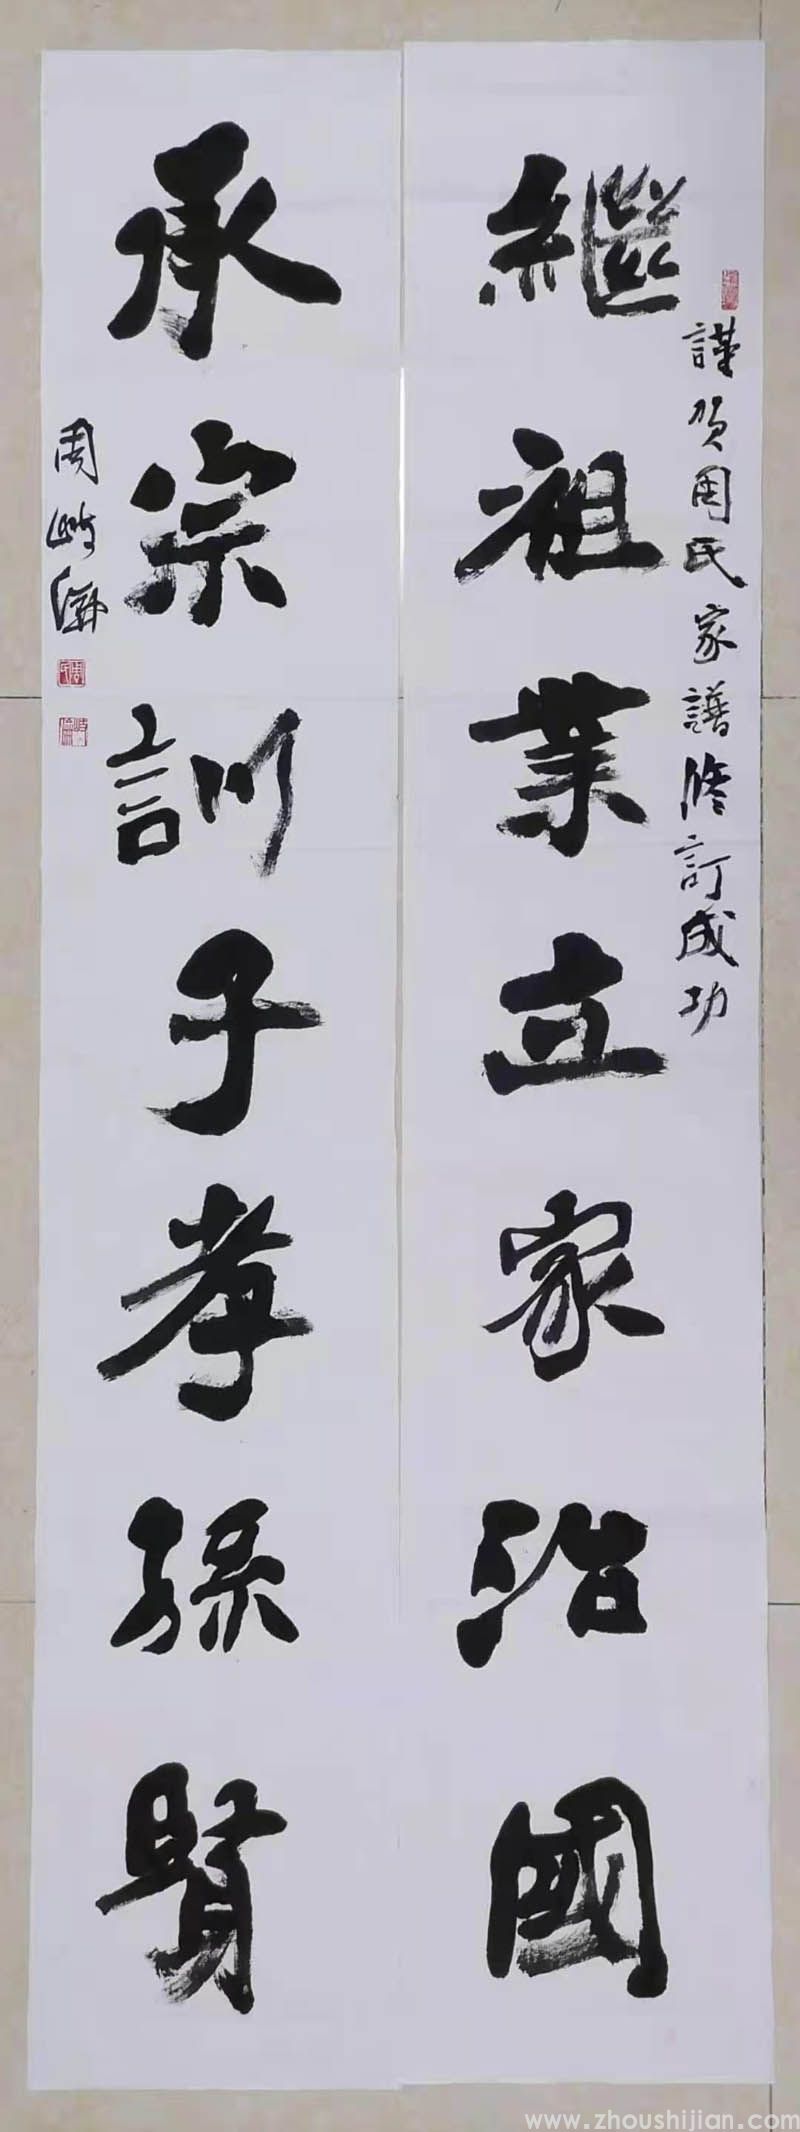 謹贺周氏家譜修訂成功
繼祖業立家治國
承宗訓子孝孫賢
周
www.zhoushijian.com